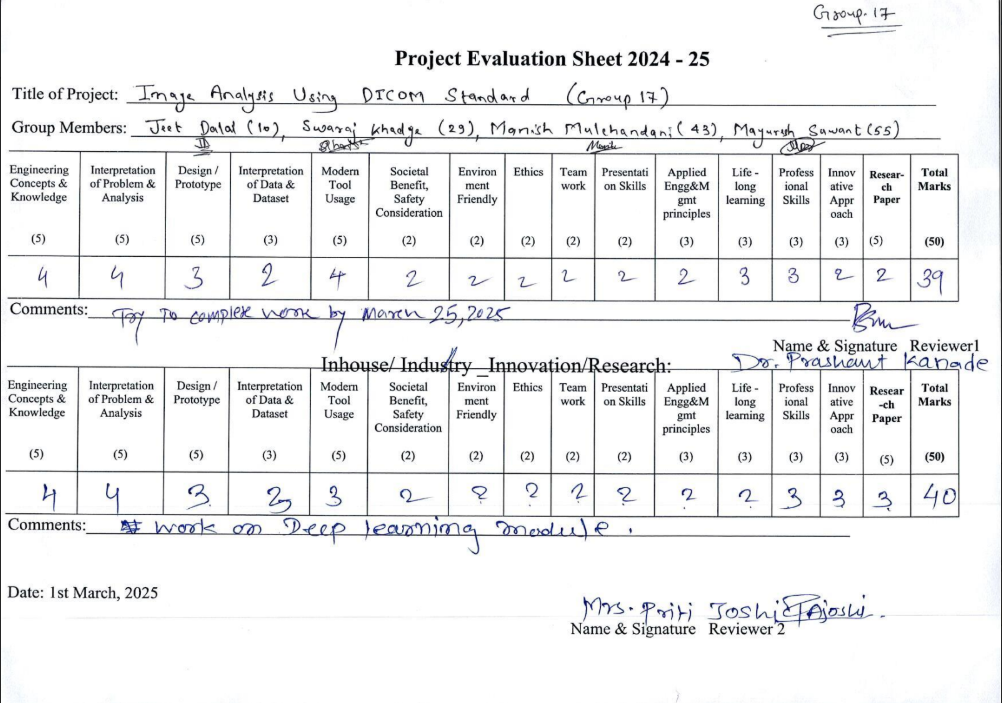 Group. 17
Project Evaluation Sheet 2024 - 25
Title of Project: Image Analysis Using DICOM Standard (Group 17)
Group Members: Jeet Dalal (10), Swaraj Khadge (29), Manish Mulchandani (43), Mayuresh Sawant (55)
Engineering Concepts & Knowledge (5) Interpretation of Problem & Analysis (5) Design / Prototype (5) Interpretation of Data & Dataset (3) Modern Tool Usage (5) Societal Benefit, Safety Consideration (2) Environ ment Friendly (2) Ethics (2) Team work (2) Presentati on Skills (2) Applied Engg&M gmt principles (3) Life - long learning (3) Profess ional Skills (3) Innov ative Appr oach (3) Resear- ch Paper (5) Total Marks (50)
4 4 3 2 4 2 2 2 2 2 2 3 3 2 2 39
Comments: Try To complete work by March 25, 2025
Name & Signature Reviewer1
Inhouse/ Industry _Innovation/Research: Dr. Prashant Kanade
Engineering Concepts & Knowledge (5) Interpretation of Problem & Analysis (5) Design / Prototype (5) Interpretation of Data & Dataset (3) Modern Tool Usage (5) Societal Benefit, Safety Consideration (2) Environ ment Friendly (2) Ethics (2) Team work (2) Presentati on Skills (2) Applied Engg&M gmt principles (3) Life - long learning (3) Profess ional Skills (3) Innov ative Appr oach (3) Resear -ch Paper (5) Total Marks (50)
4 4 3 3 3 2 2 2 2 2 2 2 3 3 3 40
Comments: work on Deep learning module.
Date: 1st March, 2025
Mrs. Priti Joshi
Name & Signature Reviewer 2